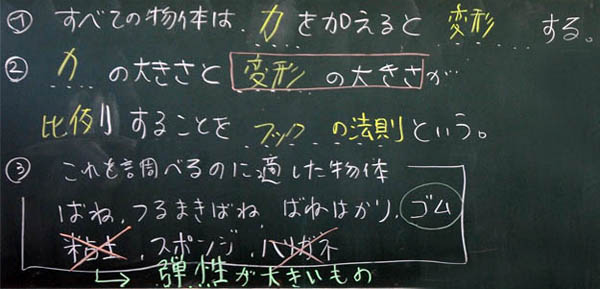 ① すべての物体は、力を加えると変形する。
② 力の大きさと変形の大きさが
比例することをフックの法則という。
③ これを調べるのに適した物体
ばね、つるまきばね、ばねはかり、ゴム
粘土、スポンジ、ハリガネ
→弾性が大きいもの